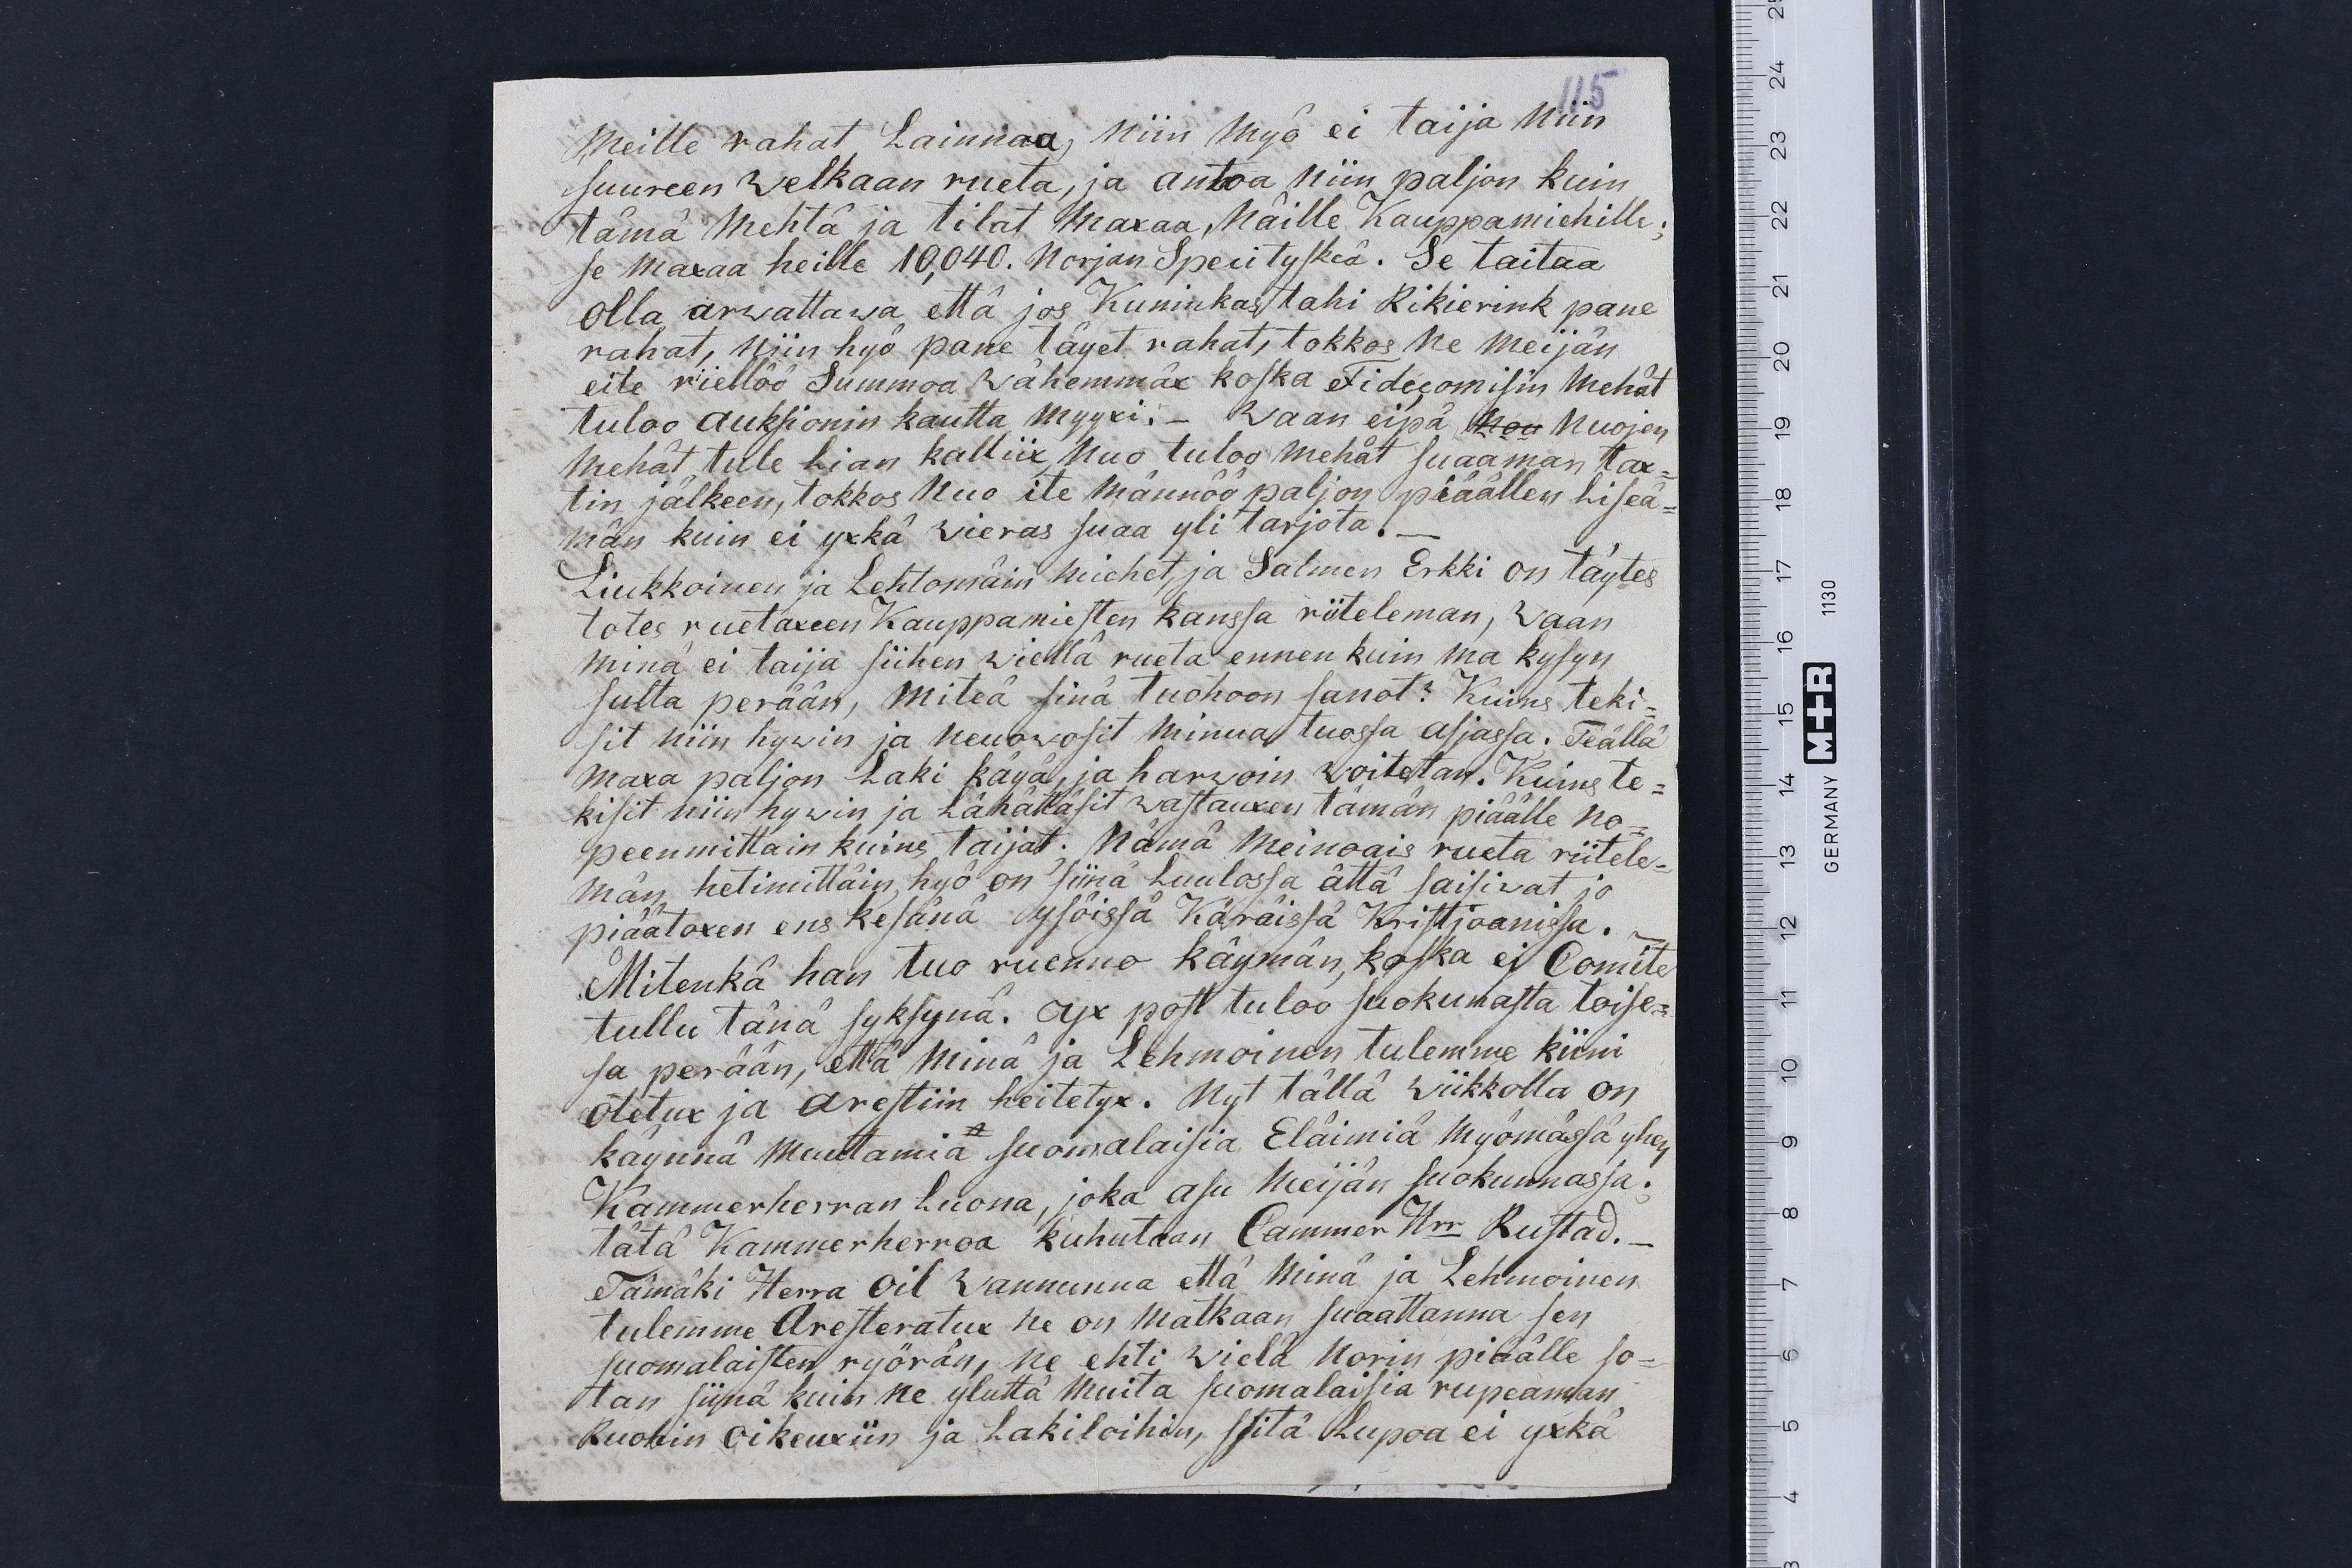 115
Meille rahat Lainnaa, niin myö ei taija niin
suureen welkaan rueta, ja antoa niin paljon kuin
tämä Mehtä ja tilat maxaa, näille Kauppamiehille;
se maxaa heille 10,040. Norjan Specityskiä. Se taitaa
olla arwattawa että jos Kuninkas tahi Rikierink pane
rahat, niin hyö pane täyet rahat, tokkos ne meijän
eite riellöö Summoa wähemmäx koska Fideçomisin Mehät
tuloo auksionin kautta myyxi. – Waan eipä nou nuojen
mehät tule Lian kalliix, nuo tuloo mehät suaaman tax=
tin jälkeen, tokkos nuo ite männöö paljon piäällen Liseä=
män kuin ei yxkä wieras suaa yli tarjota. –
Liukkoinen ja Lehtomäin miehet, ja Salmen Erkki on täytes
totes ruetaxeen Kauppamiesten kanssa riiteleman, waan
minä ei taija siihen wiellä rueta ennen kuin ma kysyn
sulta perään, miteä sinä tuohoon sanot? Kuins teki=
sit niin hywin ja neuowosit minua tuossa asjassa. Teällä
maxa paljon Laki käyä, ja harwoin woitetan. Kuins te=
kisit niin hywin ja Lähättäsit wastauxen tämän piäälle no=
peenmittain kuins taijat. Nämä meinoais rueta riitele=
män hetimittäin, hyö on siinä Luulossa ättä saisiwat jo
piäätoxen ens kesänä ysöissä Käräissä Kristjoanissa.
Mitenkä han tuo ruenno käymän, koska ei Comite
tullu tänä syksynä. Yx post tuloo suokunasta toise=
sa perään, että minä ja Lehmoinen tulemme kiini
otetux ja arestiin heitetyx. Nyt tällä wiikkolla on
käynnä muutamia suomalaisia Eläimiä myömässä yhen
Kammerherran Luona, joka asu meijän suokunnassa;
tätä Kammerherroa kuhutaan Cammer Hrr Rustad. –
Tämäki Herra oil wannunna että minä ja Lehmoinen
tulemme Aresteratux ne on matkaan suaattanna sen
suomalaisten ryörän, ne ehti wielä Norin piäälle so=
tan siinä kuin ne yluttä muita suomalaisia rupeaman
Ruohin oikeuxiin ja Lakiloihin, sitä Lupoa ei yxkä
25
24
23
22
21
20
19
18
17
16
15
14
13
12
11
10
9
8
7
6
5
4
3
GERMANY M+R 1130